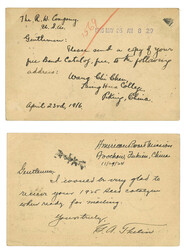 The R. H. Company
U.S.A.
Gentlemen:
Please send a copy of your
free Seed Catalog, for to the following
address:
Wang Chi Chen,
Tsing Hua College
Peking, China
April 23rd, 1916.
American Board Mission
Foochow, Fukien, China
11/24/24
Gentlemen,
I would be very glad to
receive your 1925 Seed catalogue
when ready for mailing.
Yours truly,